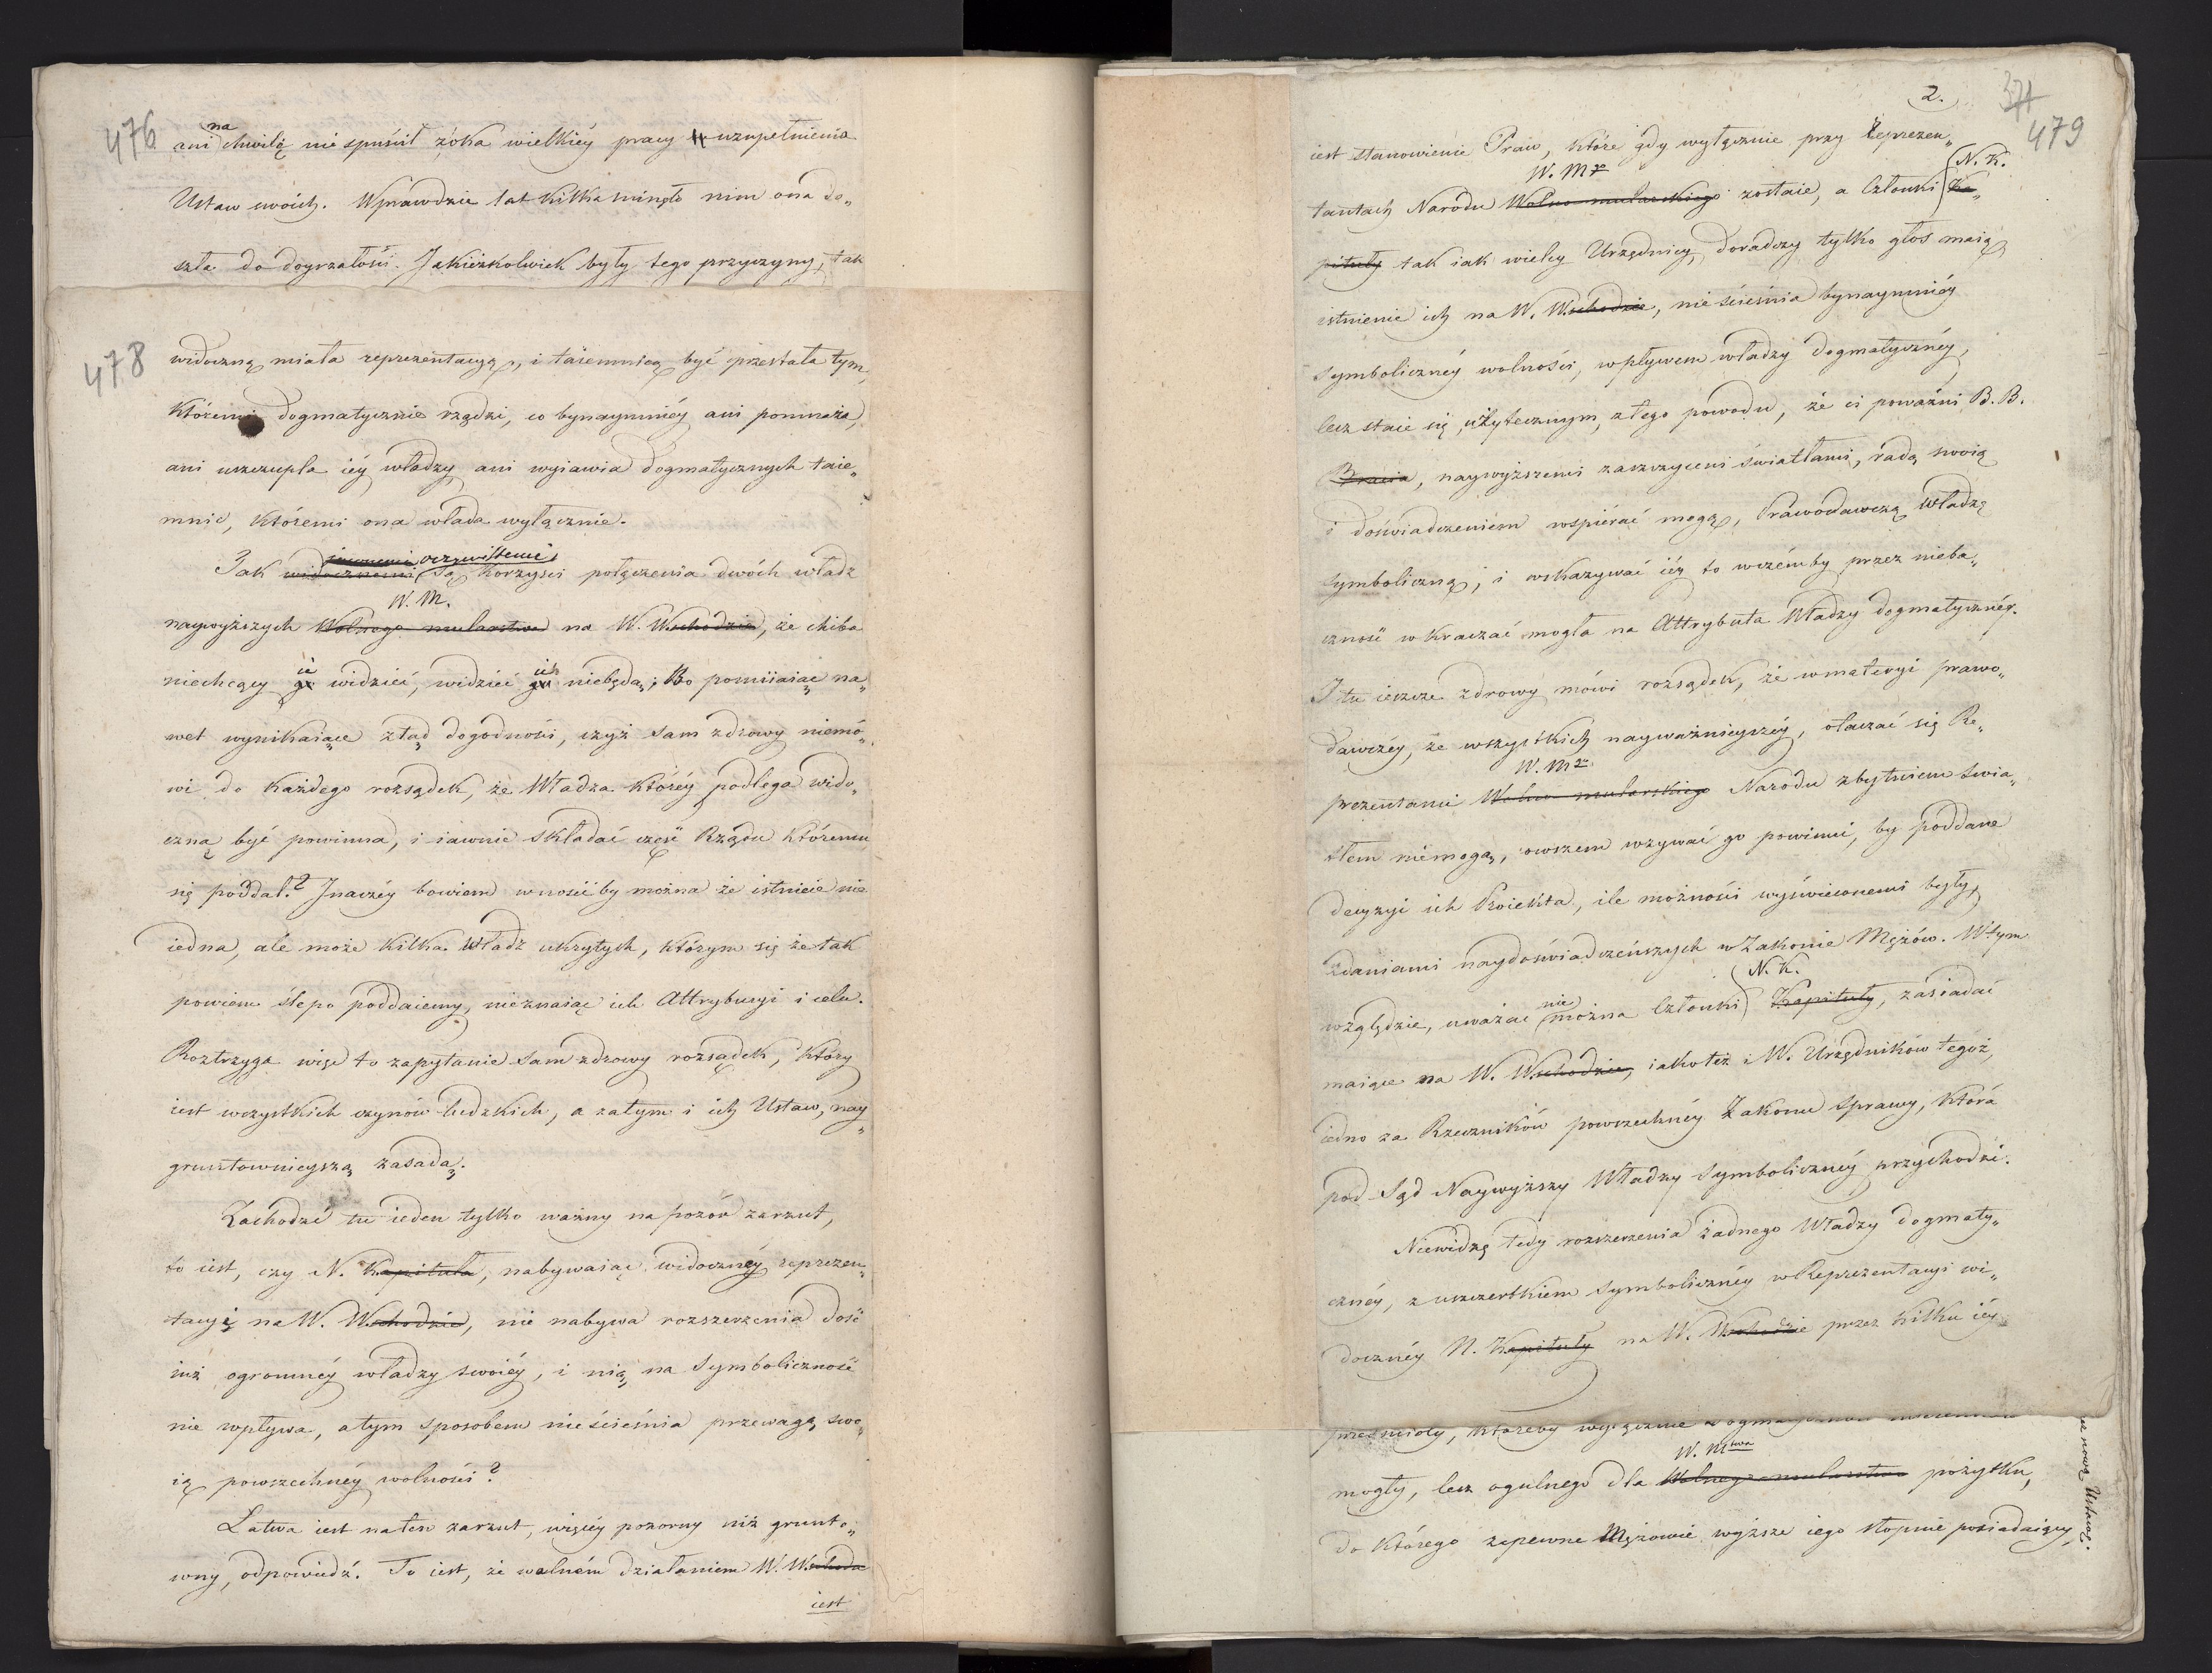 476
na
ani chwilę nie spuścił z oka wielkiéy pracy uzupełnienia
Ustaw swoich. Wprawdzie lat kilka minęło nim ona do„
szła do doyrzałości. Jakieżkolwiek były tego przyczyny, tak
478
widoczną miała reprezentacyą, i taiemnicą być przestała tym,
któremi dogmatycznie rządzi, co bynaymniéy ani pomnaża,
ani uszczupla iéy władzy, ani wyiawia dogmatycznych taie„
mnic, któremi ona włada wyłącznie.
oczywistemi
Tak widocznemi są korzyści połączenia dwóch władz
W. M.
naywyższych Wolnego mularstwa na W. Wschodzie, że chiba
ie ich
niechcący go widzieć, widzieć go niebędą; Bo pomiiaiąc na„
wet wynikaiące ztąd dogodności, czyż sam zdrowy niemó„
wi do każdego rozsądek, że Władza któréy podlega wido„
czną być powinna, i iawnie składać część Rządu któremu
się poddał? Jnaczéy bowiem wnosićby można że istnieie nie
iedna, ale może kilka Władz ukrytych, którym się że tak
powiem ślepo poddaiemy, nieznaiąc ich Attrybucyi i celu.
Roztrzyga więc to zapytanie sam zdrowy rozsądek, który
iest wszystkich czynów ludzkich, a zatym i ich Ustaw, nay„
gruntownieyszą zasadą.
Zachodzi tu ieden tylko ważny na pozór zarzut,
to iest, czy N. Kapituła, nabywaiąc widocznéy reprezen„
tacyi na W. Wschodzie, nie nabywa rozszerzenia dość
iuż ogromnéy władzy swoiéy, i nią na Symboliczność
nie wpływa, a tym sposobem nie ścieśnia przewagą swo„
ią powszechnéy wolności?
Łatwa iest na ten zarzut, więcéy pozorny niż grunto„
wny, odpowiedź. To iest, że walném działaniem W. Wschodu
iest
2.
371
479
iest stanowienie Praw, które gdy wyłącznie przy Reprezen„
W. Mgo N. K.
tantach Narodu Wolno-mularskiego zostaie, a Członki Ka„
pituły tak iak wielcy Urzędnicy, doradczy tylko głos maią,
istnienie ich na W. Wschodzie, nie ścieśnia bynaymniéy
symbolicznéy wolności, wpływem władzy dogmatycznéy,
lecz staie się użytecznym, z tego powodu, że ci poważni B. B.
Bracia, naywyższemi zaszczyceni światłami, radą swoią
i doświadczeniem wspiérać mogą, Prawodawczą Władzę
symboliczną, i wskazywać iéy to w czémby przez nieba„
czność wkraczać mogła na Attrybuta Władzy dogmatycznéy.
I tu ieszcze zdrowy mówi rozsądek, że w materyi prawo„
dawczéy, ze wszystkich nayważnieyszéy, otaczać się Re„
W. Mgo
prezentanci Wolno-mularskiego Narodu zbytniem świa„
tłem niemogą, owszem wzywać go powinni, by poddane
decyzyi ich Proiekta, ile możności wyświeconemi były,
zdaniami naydoświadczeńszych w Zakonie Mężów. W tym
nie N. K.
względzie, uważać można Członki Kapituły, zasiadać
maiące na W. Wschodzie, iako też i W. Urzędników tegóż,
iedno za Rzeczników powszechnéy Zakonu sprawy, która
pod Sąd Naywyższy Władzy symbolicznéy przychodzi.
Niewidzę tedy rozszerzenia żadnego Władzy dogmaty„
cznéy, z uszczerbkiem Symbolicznéy w Reprezentacyi wi„
docznéy N. Kapituły na W. Wschodzie przez kilku iéy
przedmioty, któreby wyłącznie
W. Mtwa
mogły, lecz ogulnego dla Wolnego-mularstwa pożytku,
do którego zapewne Mężowie wyższe iego stopnie posiadaiący,
nową Ustawę.